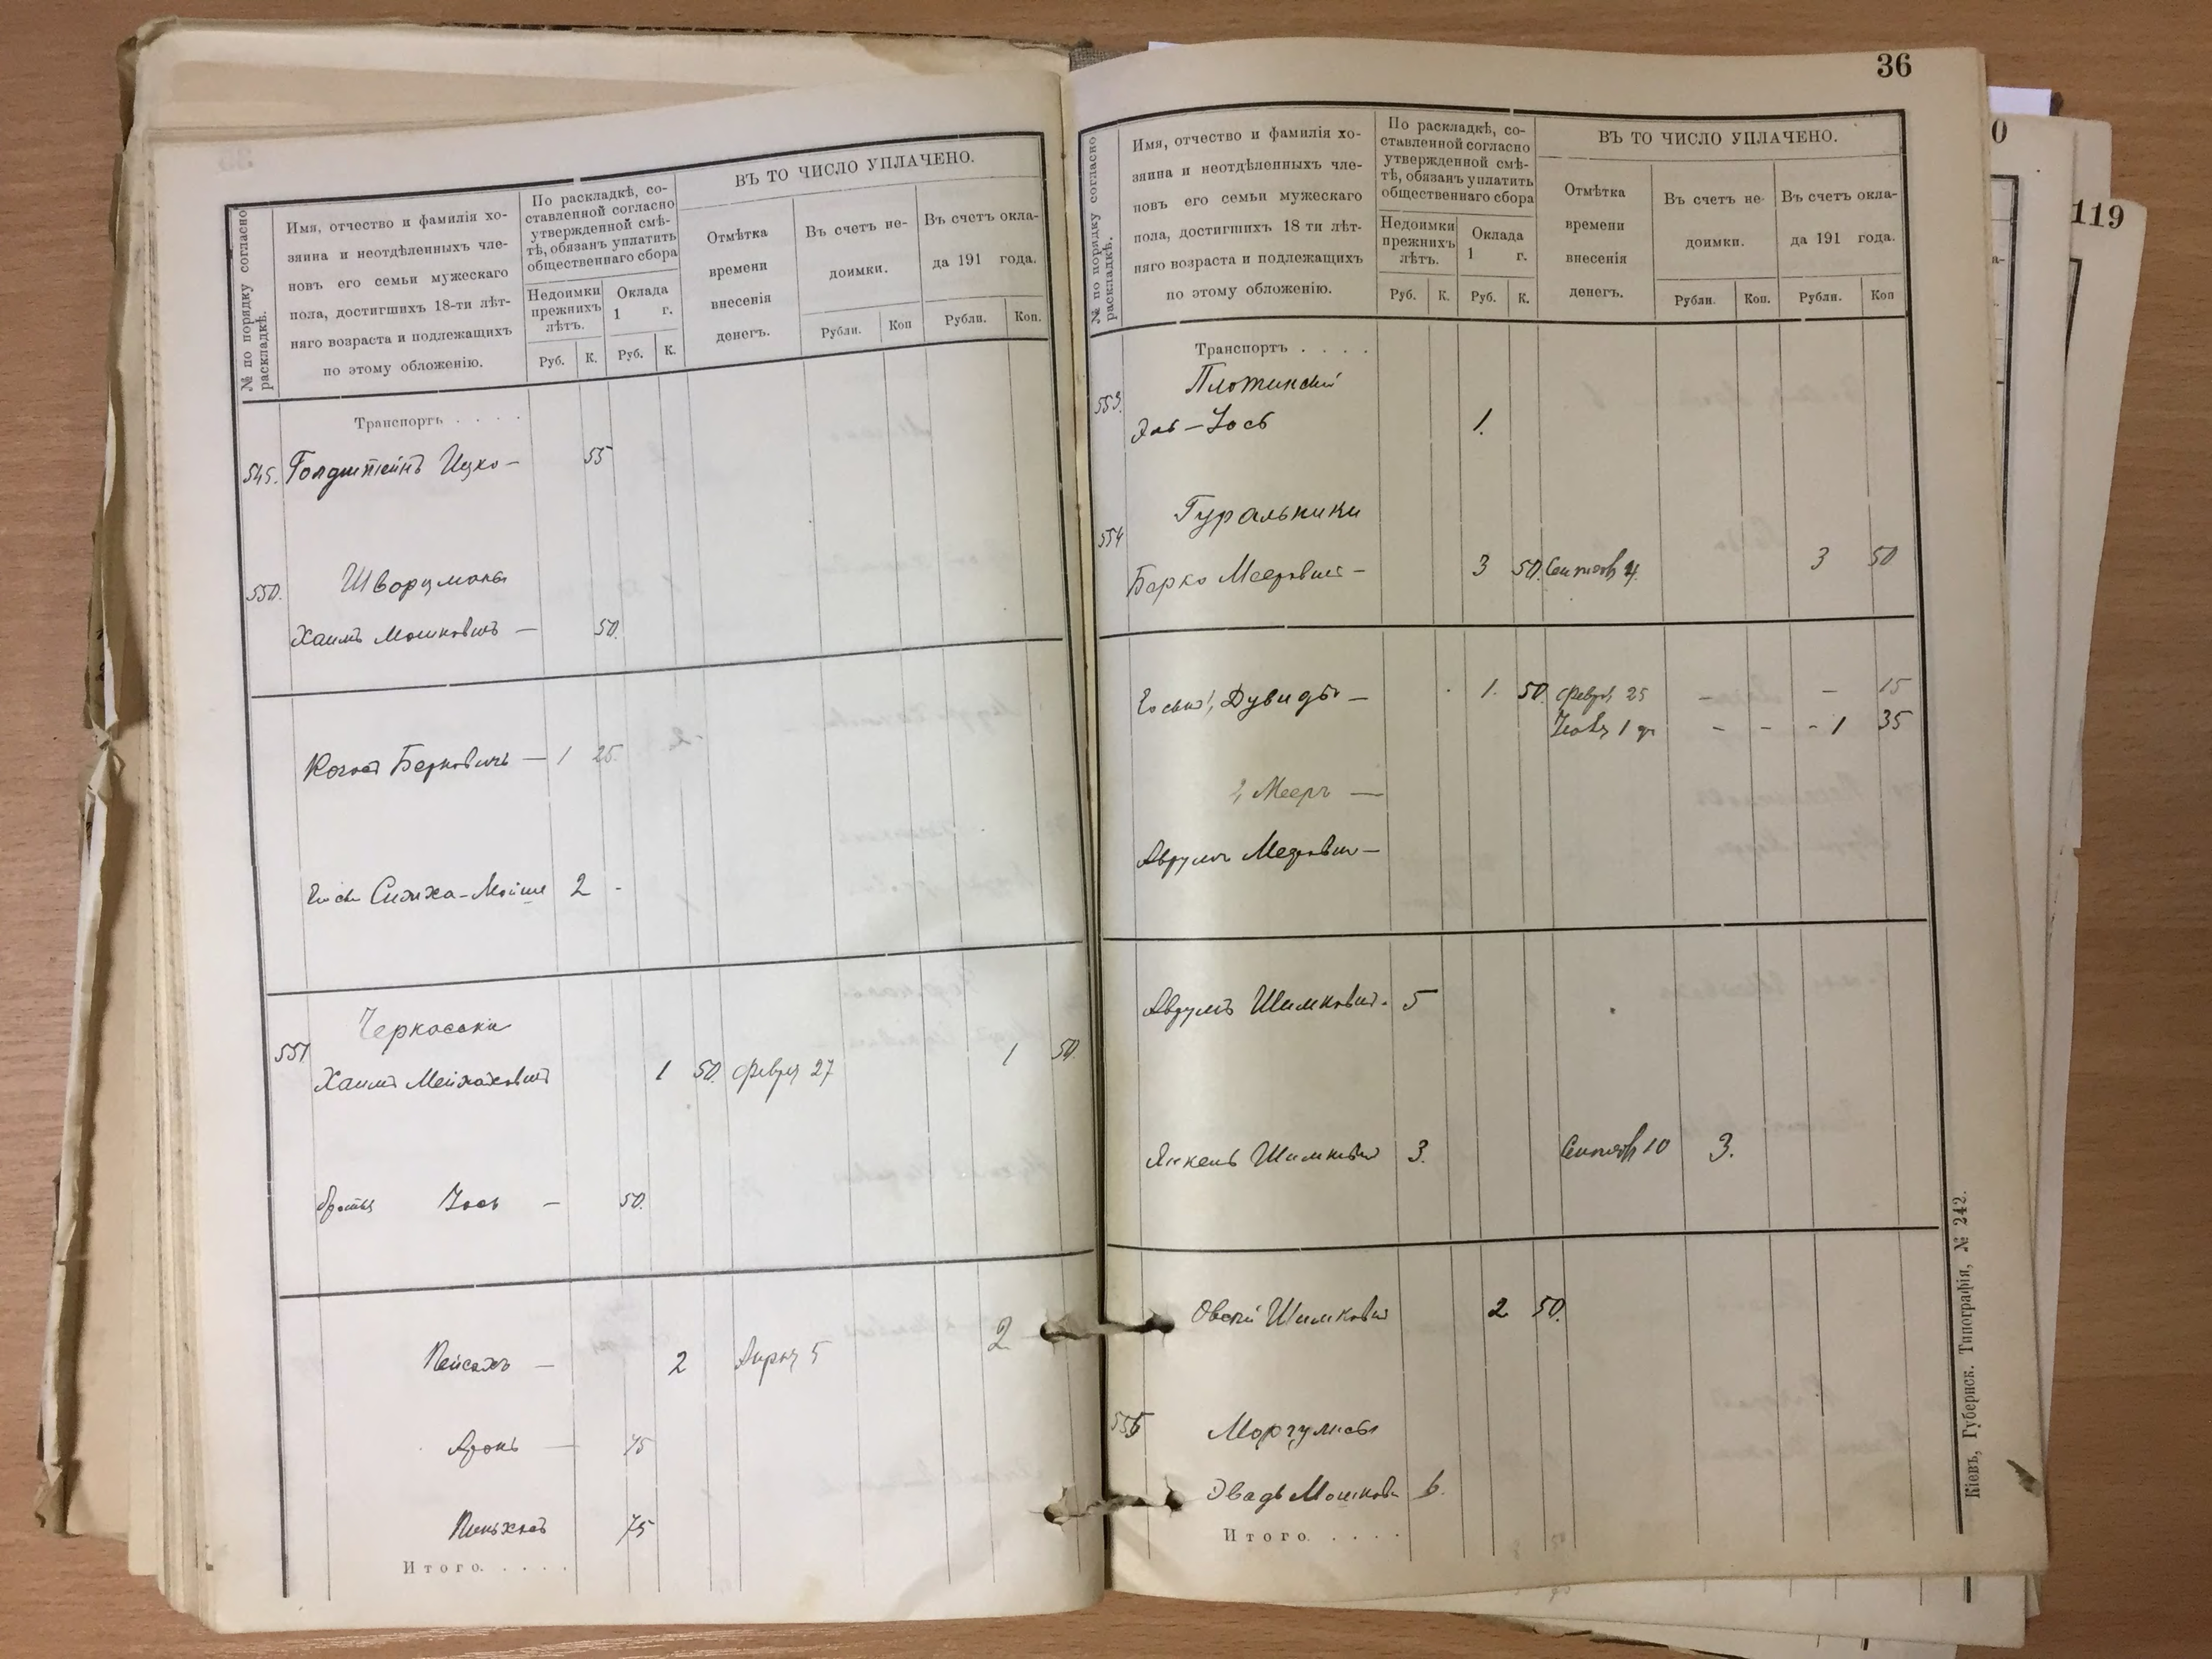 № по порядку согласно раскладкѣ.
Имя, отчество и фамилія хо-
зяина и неотдѣленныхъ чле-
новъ его семьи мужескаго
пола, достигшихъ 18-ти лѣт-
няго возраста и подлежащихъ
по этому обложенію.
По раскладкѣ, со-
ставленной согласно
утвержденной смѣ-
тѣ, обязанъ уплатить
общественнаго сбора
Недоимки
прежнихъ
лѣтъ.
Оклада
1 г.
Руб. К. Руб. К.
ВЪ ТО ЧИСЛО УПЛАЧЕНО.
Отмѣтка
времени
внесенія
денегъ.
Въ счетъ не-
доимки.
Въ счетъ окла-
да 191 года.
Рубли. Коп Рубли. Коп.
Транспортъ . . . .
545. Голдштейнъ Ицко – 55
550. Шворцманы
Хаимъ Мошковичъ – 50.
Берковичъ – 1 25.
Симха-Мойше 2 -
551 Черкасски
Хаимъ 1 50. Февр 27 1 50
братья Іось – 50.
Пейсахъ – 2 Апрл 5 2
Аронъ – 75
Пинхасъ 75
Итого. . . . .
36
№ по порядку согласно раскладкѣ.
Имя, отчество и фамилія хо-
зяина и неотдѣленныхъ чле-
новъ его семьи мужескаго
пола, достигшихъ 18 ти лѣт-
няго возраста и подлежащихъ
по этому обложенію.
По раскладкѣ, со-
ставленной согласно
утвержденной смѣ-
тѣ, обязанъ уплатить
общественнаго сбора
Недоимки
прежнихъ
лѣтъ.
Оклада
1 г.
Руб. К. Руб. К.
ВЪ ТО ЧИСЛО УПЛАЧЕНО.
Отмѣтка
времени
внесенія
денегъ.
Въ счетъ не-
доимки.
Въ счетъ окла-
да 191 года.
Рубли. Коп. Рубли. Коп
Транспортъ . . . .
553. Плотинскій
Эль – Іось 1.
554 Гуральники
Берко Мееровичъ – 3 50. Сентяб 4. 3 50
Дувидъ – 1. 50. Февр 25 – – 15
1 – – - 1 35
2, Мееръ —
Аврумъ Мееровичъ –
Аврумъ Шимковичъ. 5
Янкель Шимковичъ 3. Сентяб 10 3.
Овсей Шимковичъ 2 50.
556 Моргулисы
Эвадь Мошков 6.
Итого. . . . .
Кіевъ, Губернск. Типографія, № 242.
119